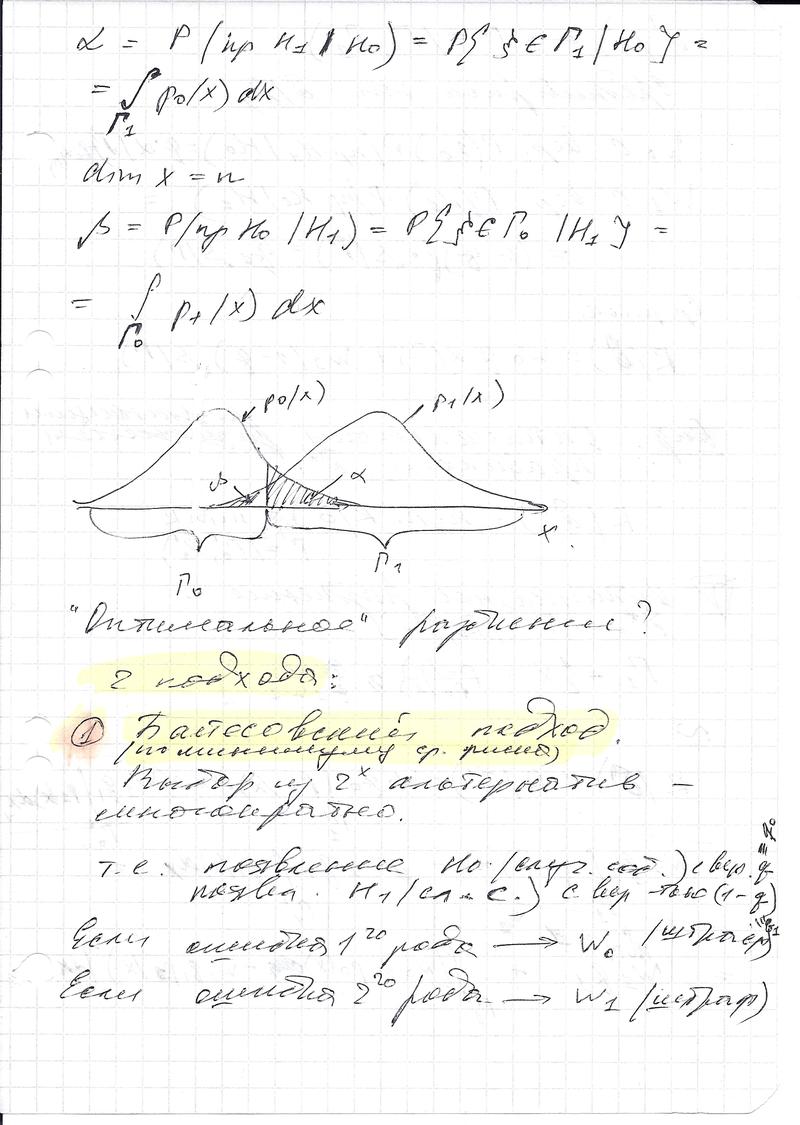 α = P(пр H₁ | H₀) = P{ξ ∈ Γ₁ | H₀} =
= ∫ p₀(x) dx
Γ₁
dim x = n
β = P(пр H₀ | H₁) = P{ξ ∈ Γ₀ | H₁} =
= ∫ p₁(x) dx
Γ₀
p₀(x) p₁(x)
β α
x
Γ₀ Γ₁
"Оптимальное" разбиение?
2 подхода:
① Байесовский подход.
(по минимуму ср. риска)
Выбор из 2ˣ альтернатив –
многократно.
т.е. появление H₀ (случ. соб.) с вер. q ≡ q₀
появл. H₁ (сл. с.) с вер-тью (1-q) ≡ q₁
Если ошибка 1го рода → W₀ (штраф)
Если ошибка 2го рода → W₁ (штраф)